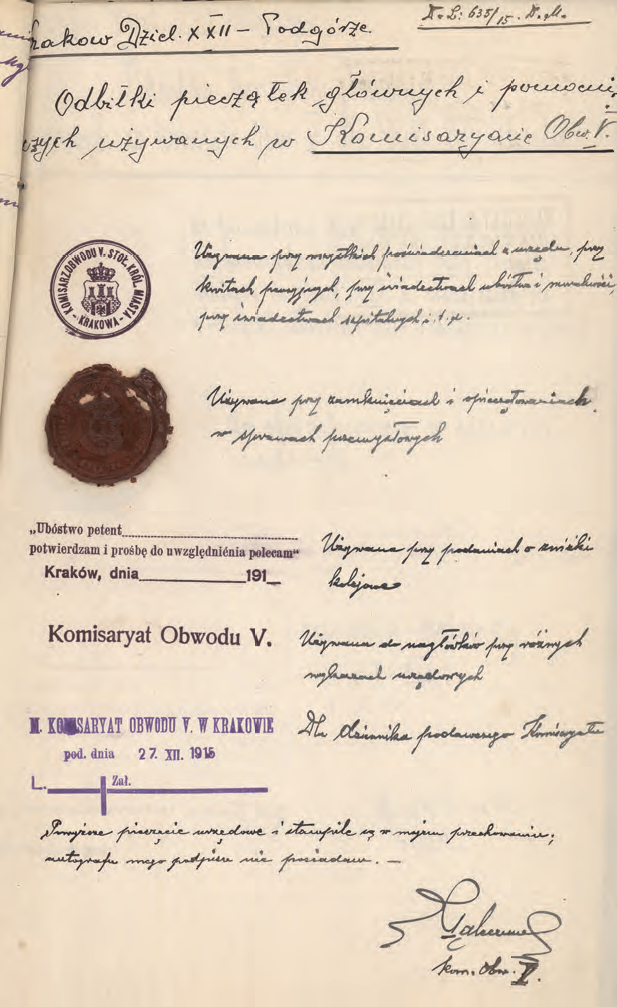 Kraków Dziel. XXII – Podgórze.
D. L: 635/15. D. M.
Odbitki pieczątek głównych i pomocni-
czych używanych w Komisaryacie Obw. V.
KOMISARZ OBWODU V. STOŁ. KRÓL. MIASTA
- KRAKOWA -
Używana przy wszystkich poświadczeniach z urzędu, przy
kwitach pensyjnych, przy świadectwach ubóstwa i moralności,
przy świadectwach szpitalnych i. t. p.
Używana przy zamknięciach i opieczętowaniach
w sprawach przemysłowych
„Ubóstwo petent
potwierdzam i prośbę do uwzględniénia polecam"
Kraków, dnia 191
Używana przy podaniach o zniżki
kolejowe
Komisaryat Obwodu V.
Używana do nagłówków przy różnych
wykazach urzędowych
M. KOMISARYAT OBWODU V. W KRAKOWIE
pod. dnia 27. XII. 1915
L. Zał.
Dla dziennika podawczego Komisaryatu
Powyższe pieczęcie urzędowe i stampile są w mojem przechowaniu;
autografu mego podpisu nie posiadam. —
kom. Obw. V.